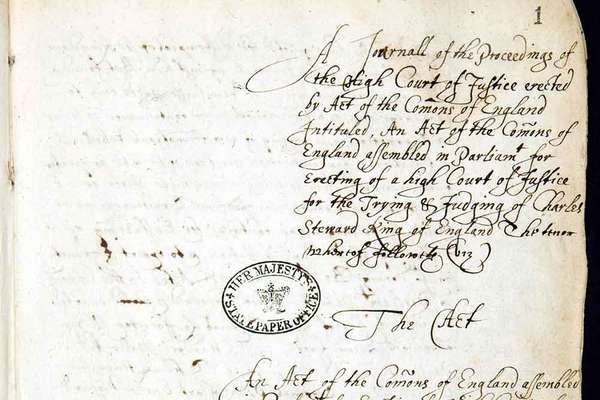 1
A Journall of the Proceedings of
the High Court of Justice erected
by Act of the Com̃ons of England
Intituled, An Act of the Com̃ons of
England assembled in Parliamt for
Erecting of a high Court of Justice
for the Trying & Judging of Charles
Steward King of England The tenor
whereof followeth (viz)
HER MAJESTY'S
STATE PAPER OFFICE
The Act
An Act of the Com̃ons of England assembled